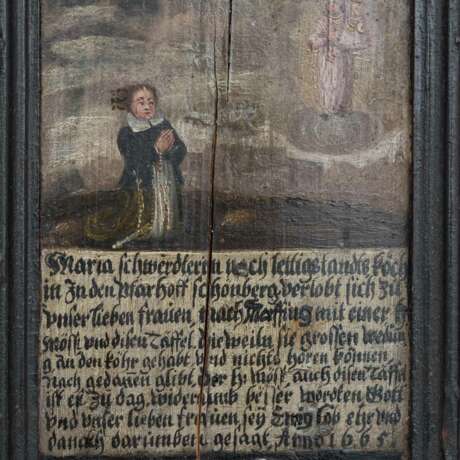 Maria schwerdlerin noch leiligs landts köch
in Zu den Pfarhoff schönberg verlobt sich Zu
vnser lieben frauen, nach mit einer
Möss vnd disen Taffel. dieweiln sie grossen
g An den köhr gehabt vnd nichts hören können,
Nach gedanen glibt, der h: Möss auch disen Taffel
ist Zu dag widerumb besser worden Gott
vnd vnser lieben frauen, sey Ewig lob ehr vnd
danckh darumben gesagt, Anno 1665.